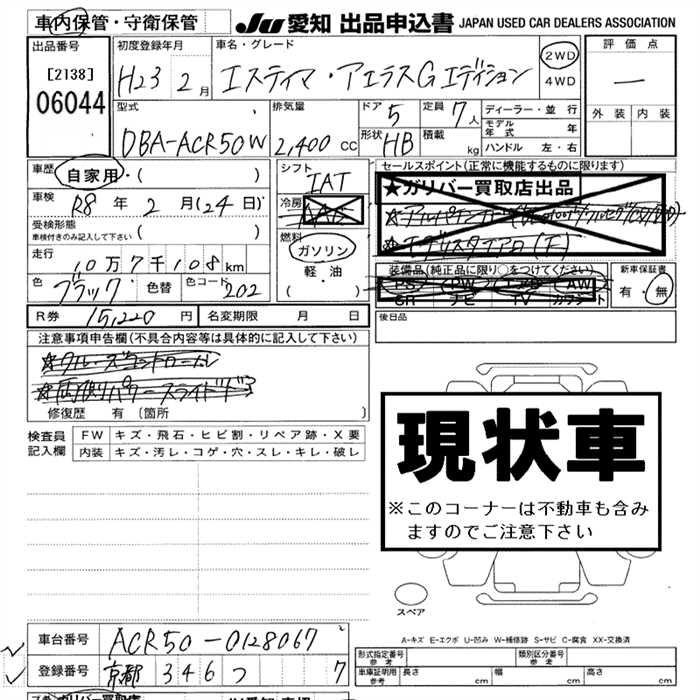 車内保管・守衛保管
JU 愛知 出品申込書 JAPAN USED CAR DEALERS ASSOCIATION
出品番号
[2138]
06044
初度登録年月
H23 2月
車名・グレード
エスティマ・アエラスGエディション
2WD
4WD
評価点
ー
外装 内装
型式
DBA-ACR50W
排気量
2,400 cc
ドア 5
形状 HB
定員 7人
積載 kg
ディーラー・並行
モデル年式 年
ハンドル 左・右
車歴 自家用・( )
車検 R8年 2月(24日)
受検形態
車検付きのみ記入して下さい ( )
走行
10万7千108km
色 ブラック 色替 色コード 202
シフト
IAT
冷房
燃料
ガソリン
軽・油
( )
セールスポイント(正常に機能するものに限ります)
★ガリバー買取店出品
装備品(純正品に限り○をつけてください)
PS PW AW
ナビ TV
新車保証書
有・無
R券 15,220円 名変期限 月 日
後日品
注意事項申告欄(不具合内容等は具体的に記入して下さい)
★クルーズコントロール
★両側パワースライドドア
修復歴 有(箇所 )
検査員記入欄
FW キズ・飛石・ヒビ割・リペア跡・X要
内装 キズ・汚レ・コゲ・穴・スレ・キレ・破レ
現状車
※このコーナーは不動車も含み
ますのでご注意下さい
スペア
A-キズ E-エクボ U-凹み W-補修跡 S-サビ C-腐食 XX-交換済
車台番号 ACR50-0128067
登録番号 京都 346 つ 7
形式指定番号 参考
類別区分番号 参考
車庫証明用 参考 長さ cm 幅 cm 高さ cm